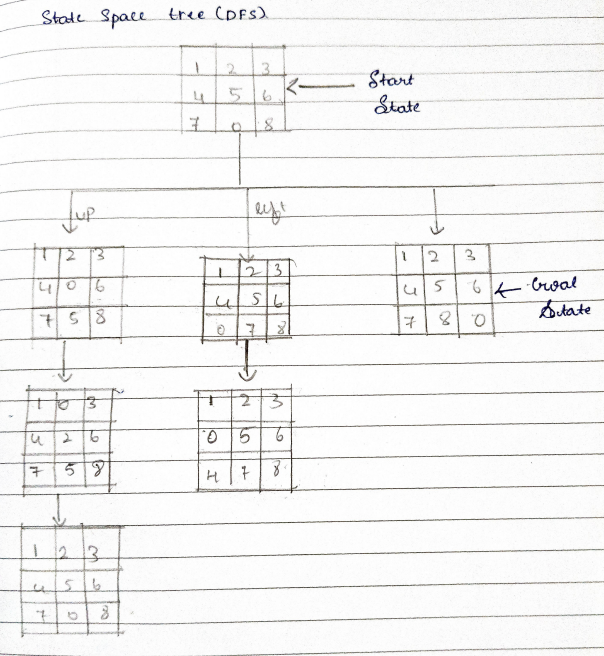 State Space tree (DFS)
1 2 3
4 5 6
7 0 8
Start
State
up
left
1 2 3
4 0 6
7 5 8
1 2 3
4 5 6
0 7 8
1 2 3
4 5 6
7 8 0
Goal
State
1 0 3
4 2 6
7 5 8
1 2 3
0 5 6
4 7 8
1 2 3
4 5 6
7 0 8